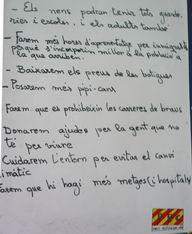 - Els nens podran tenir tots guarde-
ries i escoles. i els adults també
- Farem més hores d'aprenentatge per immigrants
perquè s'incorporin millor a la població a
la que arriben.
- Baixarem els preus de les botigues
- Posarem més pipi-cans
Farem que es prohibeixin les carreres de braus
Donarem ajudes per la gent que no
té per viure
Cuidarem l'entorn per evitar el canvi
climàtic
Farem que hi hagi més metges (i hospitals)